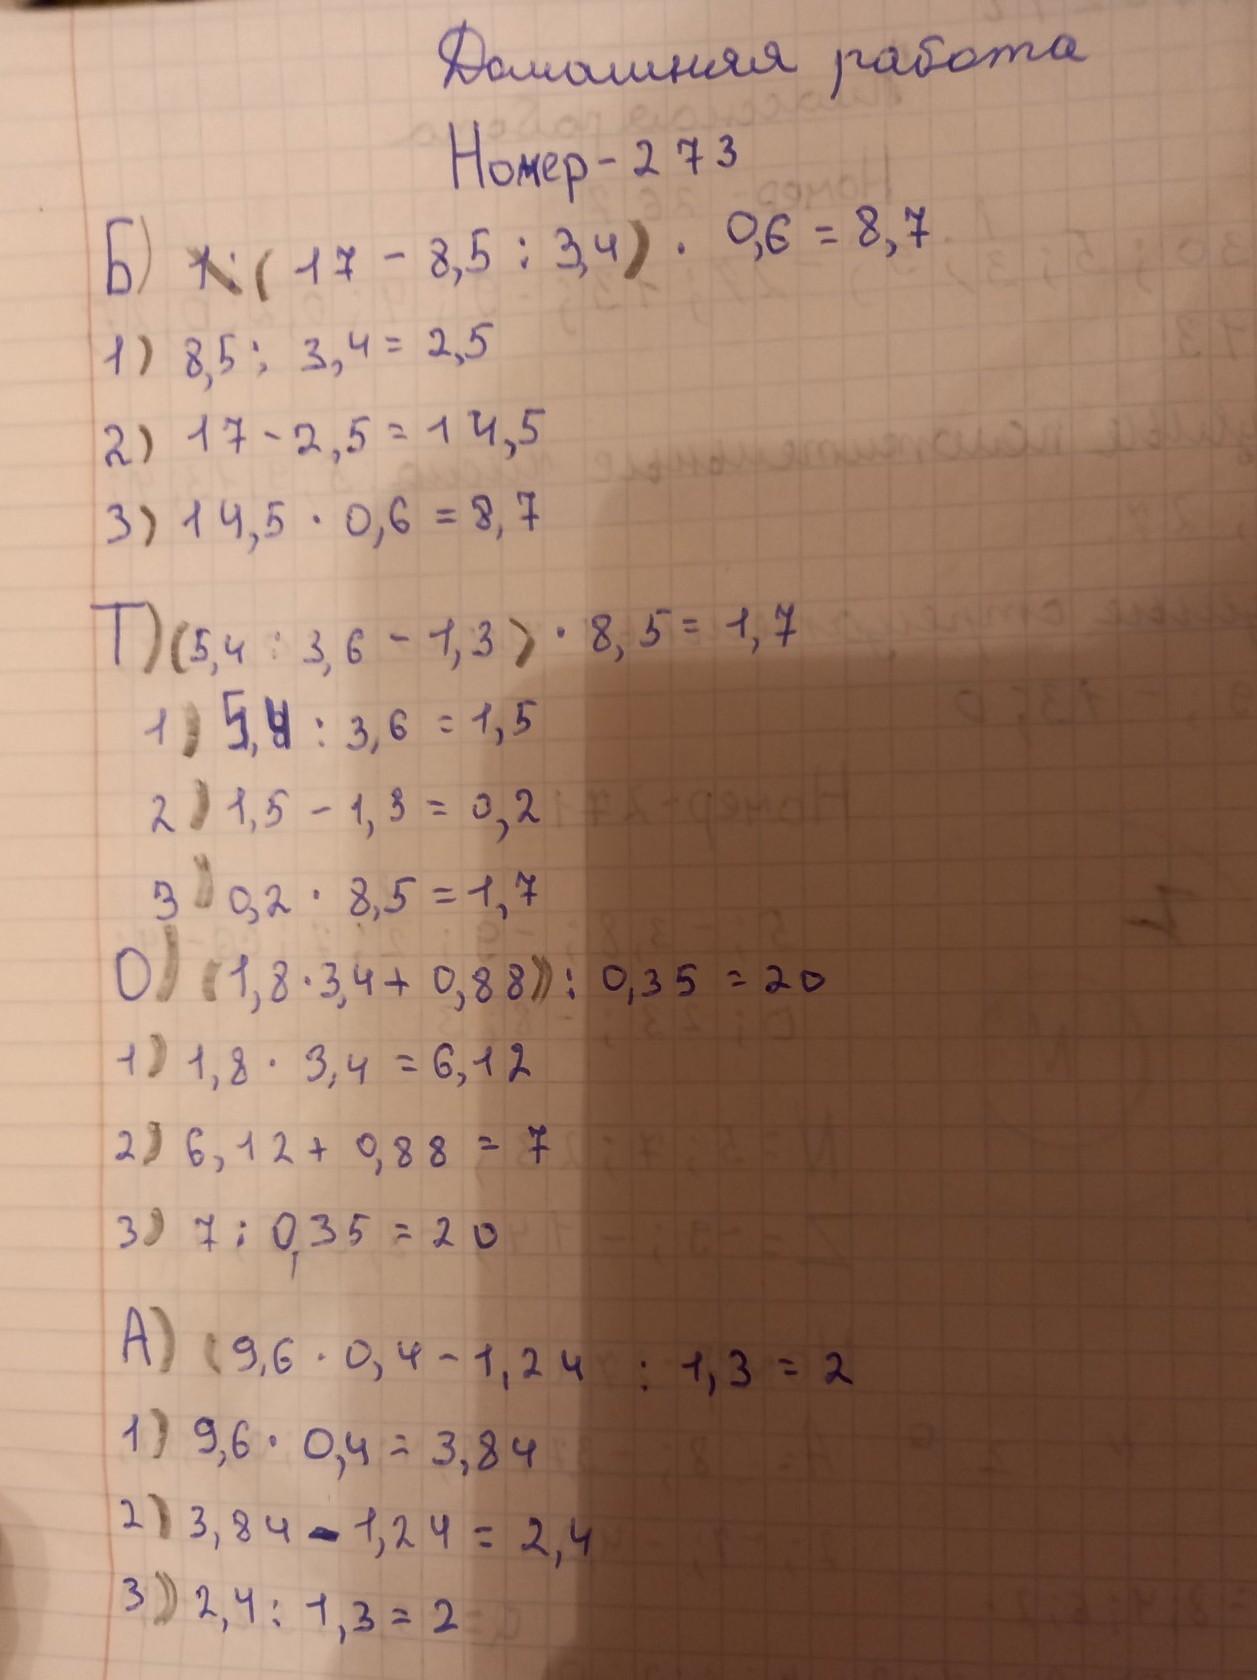 Домашняя работа
Номер - 273
Б) (17 - 8,5 : 3,4) · 0,6 = 8,7
1) 8,5 : 3,4 = 2,5
2) 17 - 2,5 = 14,5
3) 14,5 · 0,6 = 8,7
Т) (5,4 : 3,6 - 1,3) · 8,5 = 1,7
1) 5,4 : 3,6 = 1,5
2) 1,5 - 1,3 = 0,2
3) 0,2 · 8,5 = 1,7
О) (1,8 · 3,4 + 0,88) : 0,35 = 20
1) 1,8 · 3,4 = 6,12
2) 6,12 + 0,88 = 7
3) 7 : 0,35 = 20
А) (9,6 · 0,4 - 1,24 : 1,3 = 2
1) 9,6 · 0,4 = 3,84
2) 3,84 - 1,24 = 2,4
3) 2,4 : 1,3 = 2